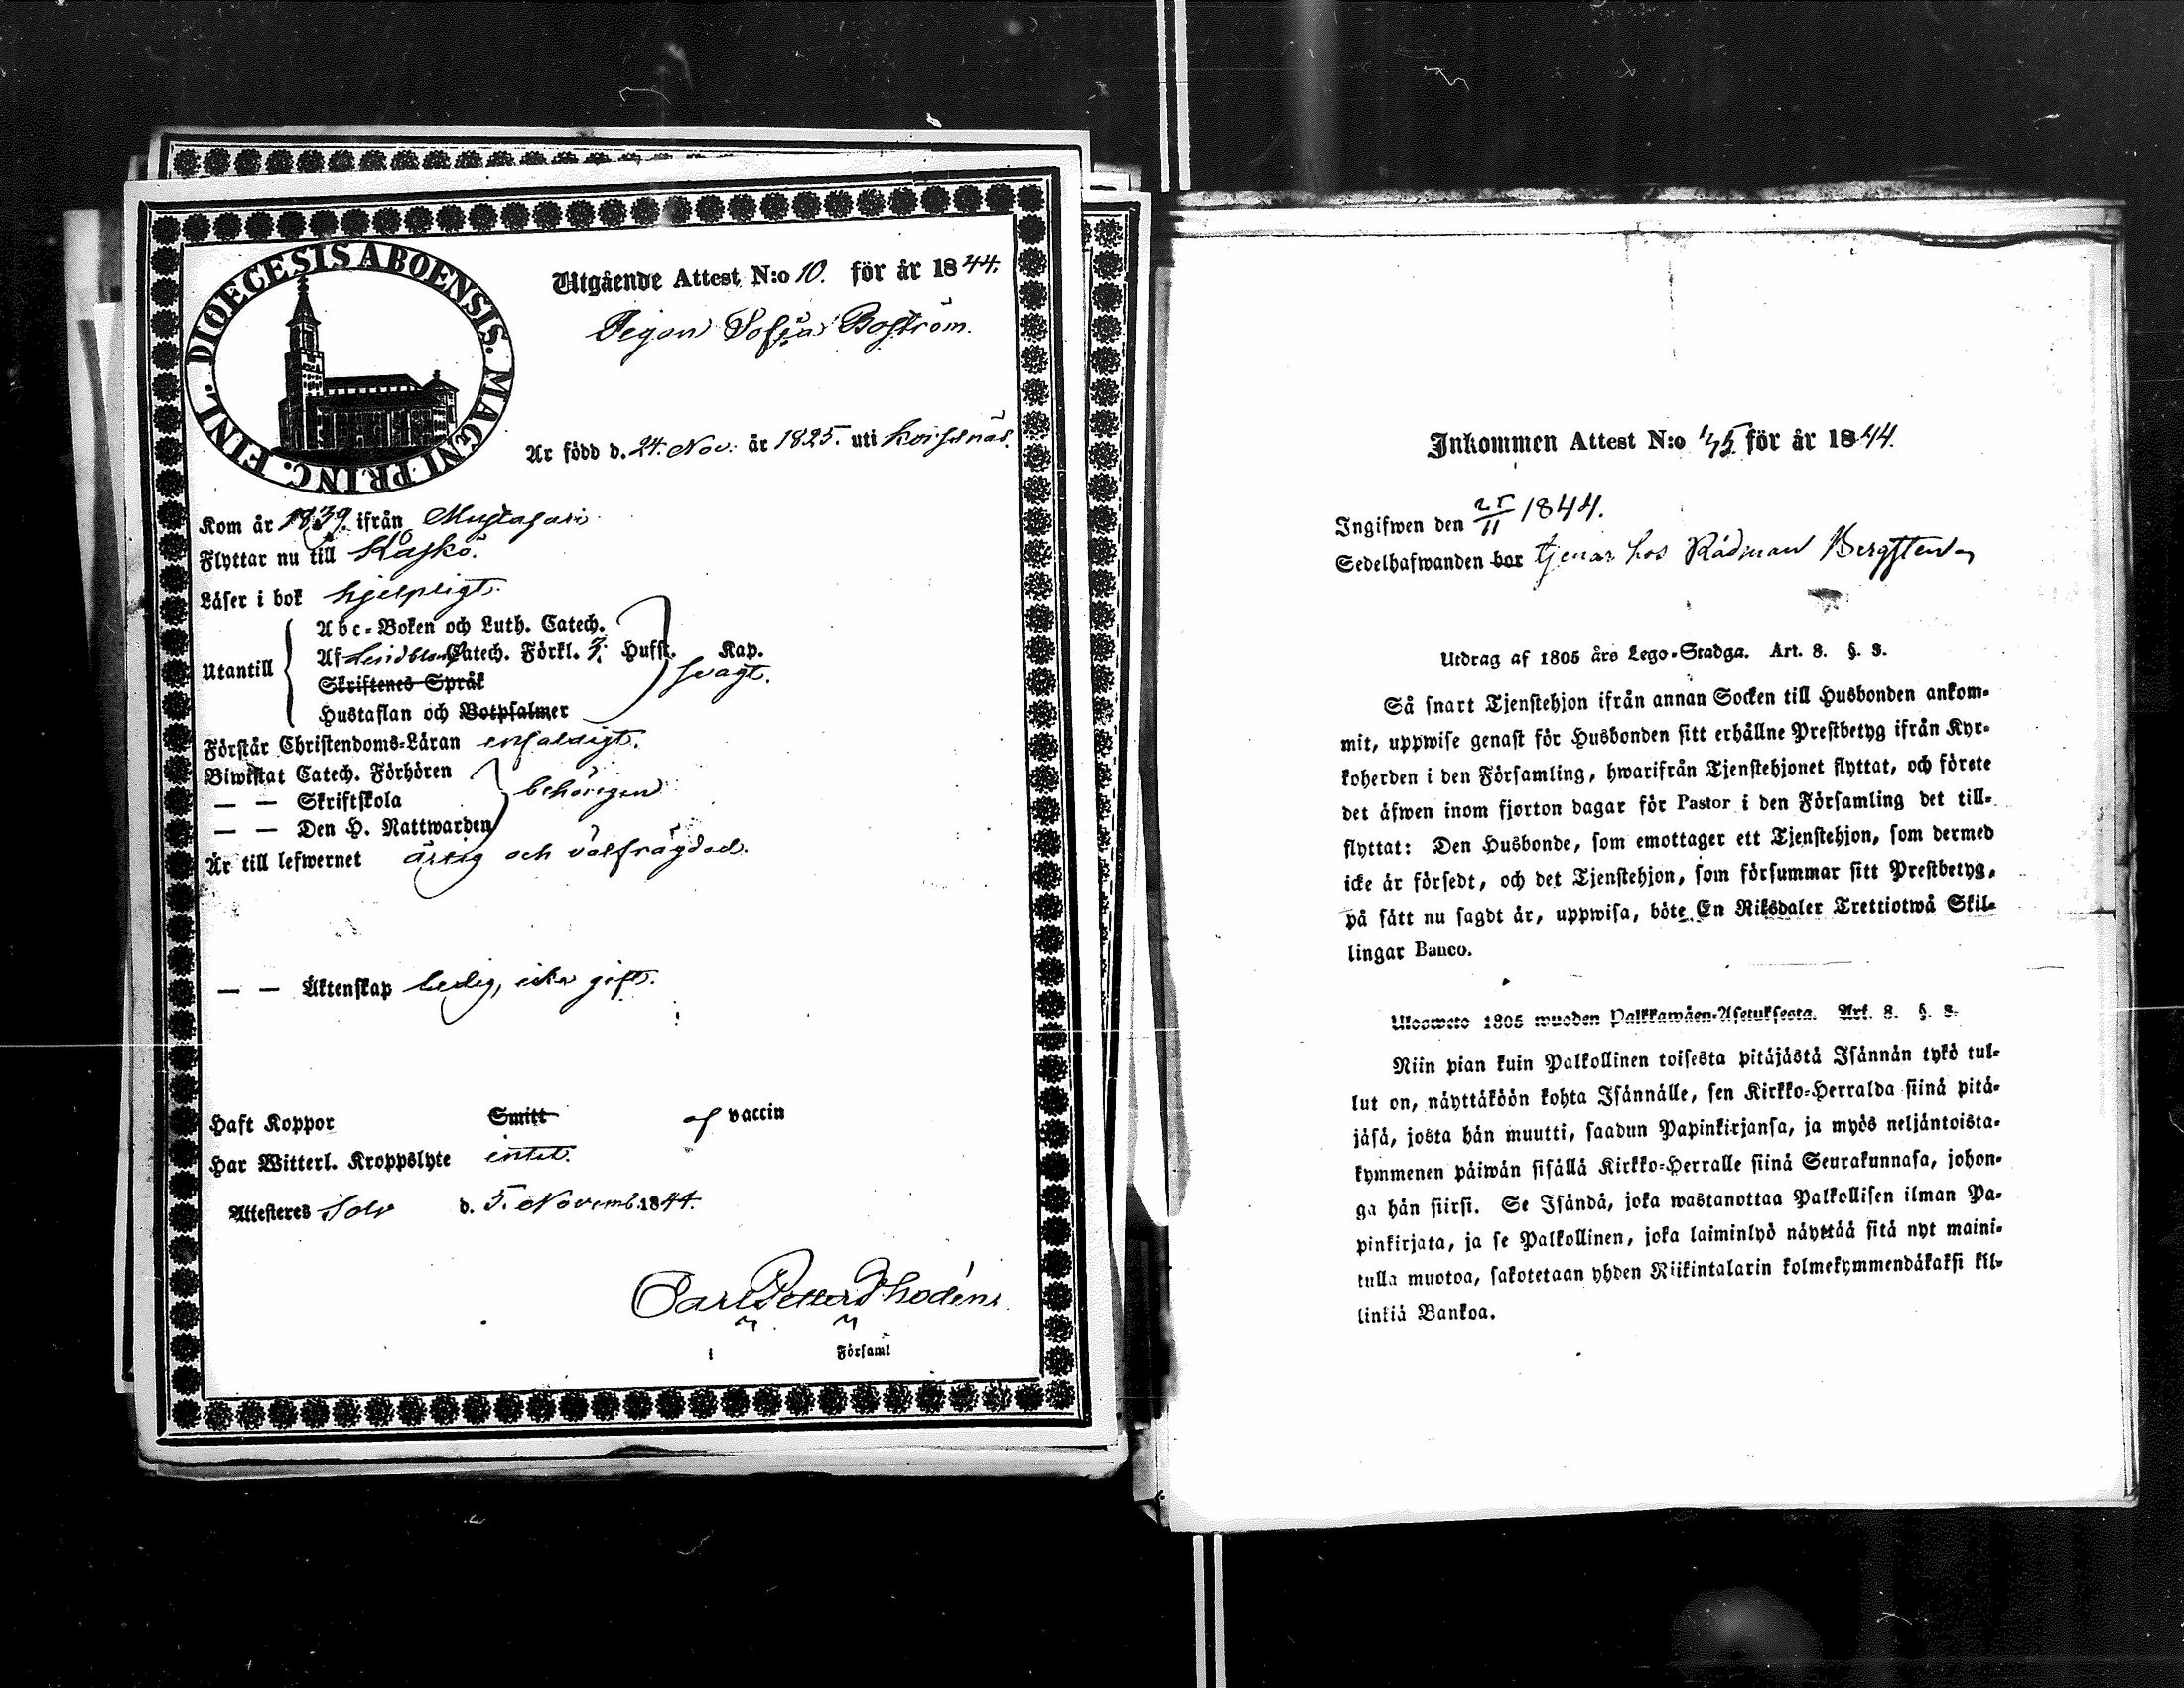 DIOECESIS ABOENSIS. MAGNI PRINC. FINL.
Utgående Attest N:o 10. för år 1844.
Pigan Sofia Boström.
Är född d. 24. Nov. år 1825. uti Korsnäs.
Kom år 1839. ifrån
Flyttar nu till Kaskö.
Läser i bok hjelpligt.
Utantill
Abc-Boken och Luth. Catech.
Af Lindblom Catech. Förkl. 3. Husst. Kap.
Skriftenes Språk
svagt.
Hustaflan och Botpsalmer
Förstår Christendoms-Läran enfaldigt.
Biwistat Catech. Förhören
— — Skriftskola
behörigen
— — Den H. Nattwarden
Är till lefwernet ärlig och välfrägdad.
— — Äktenskap ledig, icke gift.
Haft Koppor Smitt af vaccin
Har Witterl. Kroppslyte intet.
Attesteres Solv d. 5. Novemb. 1844.
Carl Petter Rhodén
i Församl
Inkommen Attest N:o 45 för år 1844.
Ingifwen den 25/11 1844.
Sedelhafwanden bor tjenar hos Rådman Bergsten
Utdrag af 1805 års Lego-Stadga. Art. 8. §. 3.
Så snart Tjenstehjon ifrån annan Socken till Husbonden ankom-
mit, uppwise genast för Husbonden sitt erhållne Prestbetyg ifrån Kyr-
koherden i den Församling, hwarifrån Tjenstehjonet flyttat, och förete
det äfwen inom fjorton dagar för Pastor i den Församling det till-
flyttat: Den Husbonde, som emottager ett Tjenstehjon, som dermed
icke är försedt, och det Tjenstehjon, som försummar sitt Prestbetyg,
på sätt nu sagdt är, uppwisa, böte En Riksdaler Trettiotwå Skil-
lingar Banco.
Ulosweto 1805 wuoden Palkkawäen-Asetuksesta. Art. 8. §. 3.
Niin pian kuin Palkollinen toisesta pitäjästä Isännän tykö tul-
lut on, näyttäköön kohta Isännälle, sen Kirkko-Herralda siinä pitä-
jäsä, josta hän muutti, saadun Papinkirjansa, ja myös neljäntoista-
kymmenen päiwän sisällä Kirkko-Herralle siinä Seurakunnasa, johon-
ga hän siirsi. Se Isändä, joka wastanottaa Palkollisen ilman Pa-
pinkirjata, ja se Palkollinen, joka laiminlyö näyttää sitä nyt maini-
tulla muotoa, sakotetaan yhden Riikintalarin kolmekymmendäkaksi kil-
linkiä Bankoa.